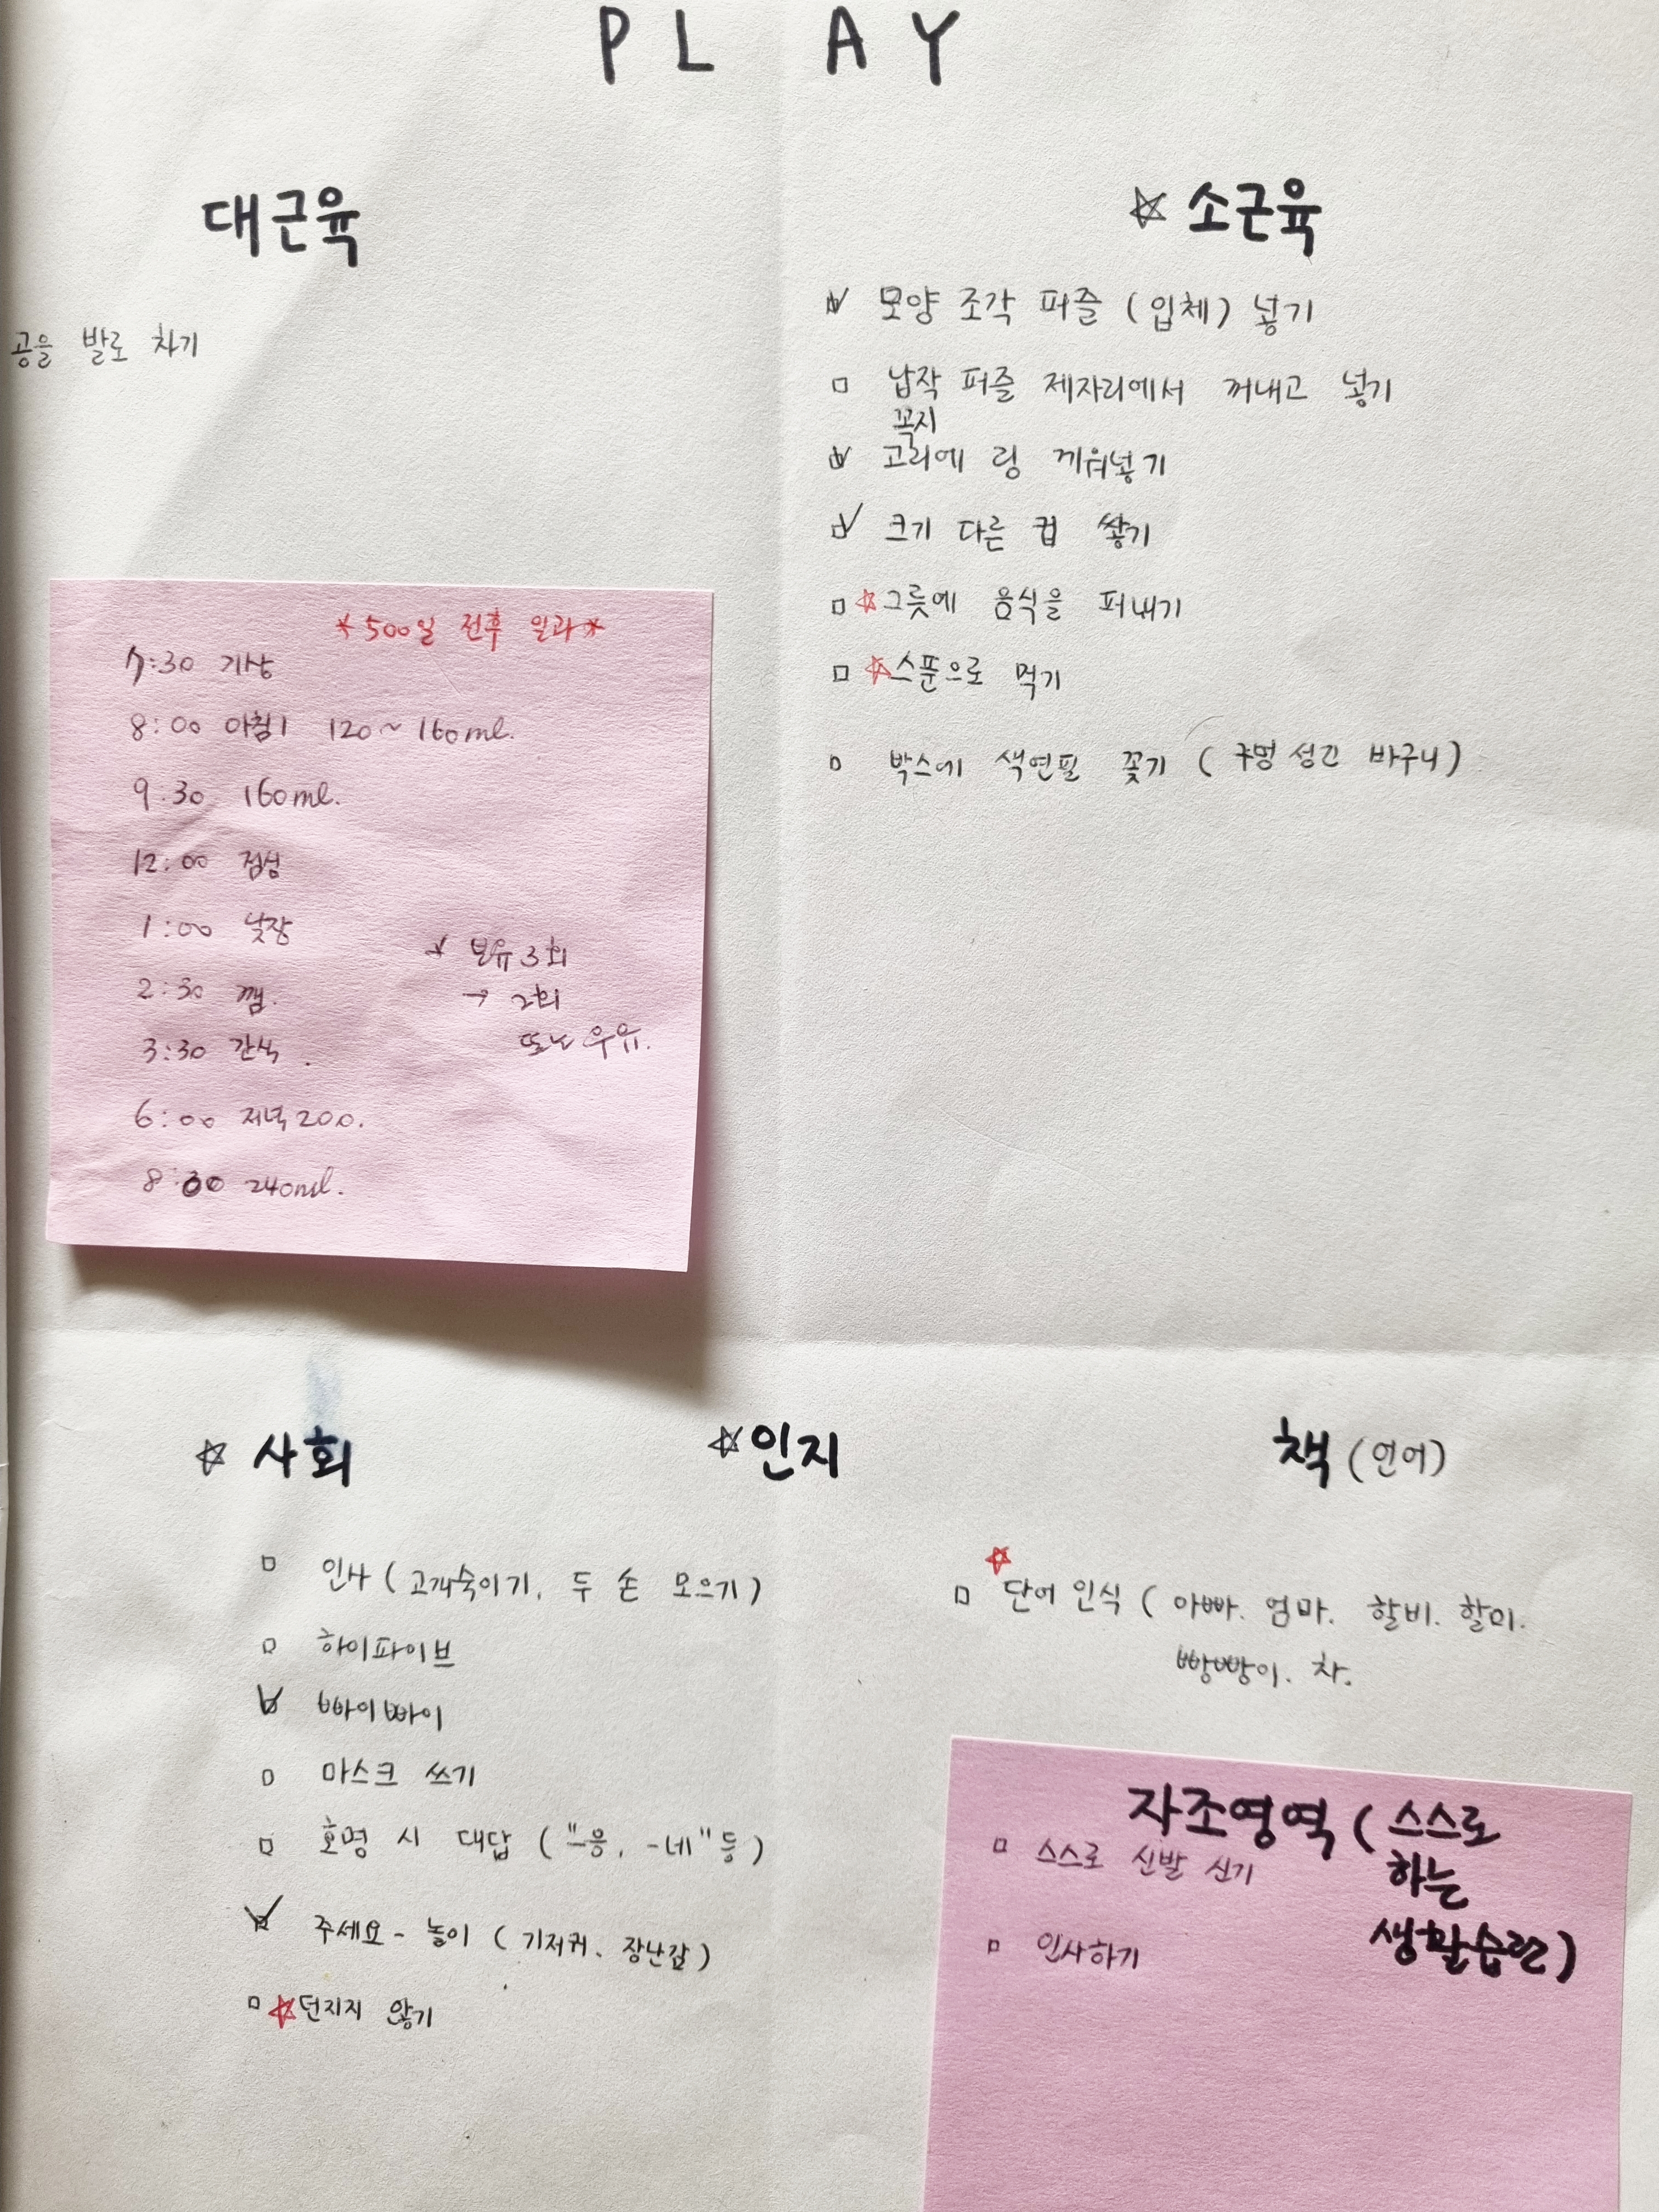 PLAY
대근육
공을 발로 차기
☆ 소근육
☑ 모양 조각 퍼즐 (입체) 넣기
□ 납작 퍼즐 제자리에서 꺼내고 넣기
꼭지
☑ 고리에 링 끼워넣기
☑ 크기 다른 컵 쌓기
□ ☆그릇에 음식을 퍼내기
□ ☆스푼으로 먹기
□ 박스에 색연필 꽂기 (구멍 성긴 바구니)
*500일 전후 일과*
7:30 기상
8:00 아침1 120~160ml.
9.30 160ml.
12:00 점심
1:00 낮잠
2:30 깸.
3:30 간식.
6:00 저녁 200.
8:30 240ml.
* 분유 3회
→ 2회
또는 우유.
☆ 사회
□ 인사 (고개숙이기, 두 손 모으기)
□ 하이파이브
☑ 빠이빠이
□ 마스크 쓰기
□ 호명 시 대답 ("-응, -네" 등)
☑ 주세요 - 놀이 (기저귀. 장난감)
□ ☆던지지 않기
☆인지
책 (언어)
☆
□ 단어 인식 (아빠. 엄마. 할비. 할미.
빵빵이. 차.
자조영역 (스스로
하는
생활습관)
□ 스스로 신발 신기
□ 인사하기